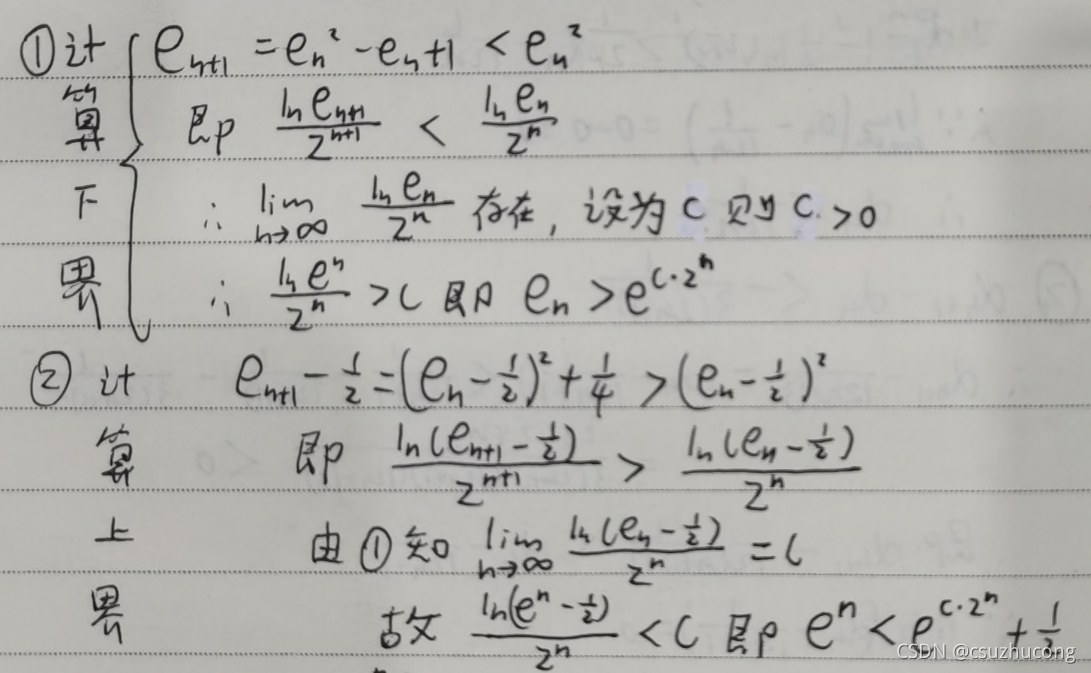 ①计算下界
e_{n+1} = e_n² - e_n + 1 < e_n²
即 \frac{ln e_{n+1}}{2^{n+1}} < \frac{ln e_n}{2^n}
∴ \lim_{n→∞} \frac{ln e_n}{2^n} 存在, 设为 C 则 C > 0
∴ \frac{ln e^n}{2^n} > C 即 e_n > e^{C·2^n}
②计算上界
e_{n+1} - \frac{1}{2} = (e_n - \frac{1}{2})² + \frac{1}{4} > (e_n - \frac{1}{2})²
即 \frac{ln(e_{n+1} - \frac{1}{2})}{2^{n+1}} > \frac{ln(e_n - \frac{1}{2})}{2^n}
由①知 \lim_{n→∞} \frac{ln(e_n - \frac{1}{2})}{2^n} = C
故 \frac{ln(e^n - \frac{1}{2})}{2^n} < C 即 e^n < e^{C·2^n} + \frac{1}{2}
CSDN @csuzhucong